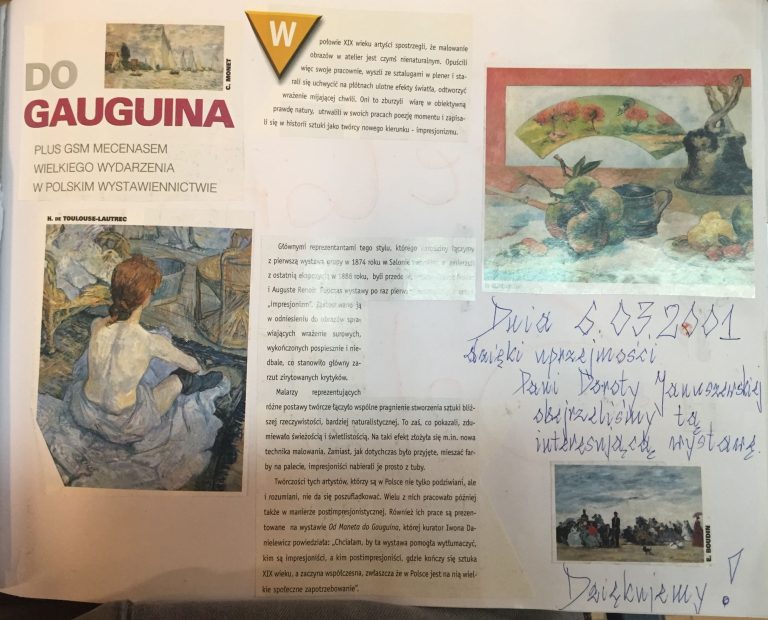 DO
GAUGUINA
PLUS GSM MECENASEM
WIELKIEGO WYDARZENIA
W POLSKIM WYSTAWIENNICTWIE
C. MONET
H. DE TOULOUSE-LAUTREC
W
połowie XIX wieku artyści spostrzegli, że malowanie
obrazów w atelier jest czymś nienaturalnym. Opuścili
więc swoje pracownie, wyszli ze sztalugami w plener i sta-
rali się uchwycić na płótnach ulotne efekty światła, odtworzyć
wrażenie mijającej chwili. Oni to zburzyli wiarę w obiektywną
prawdę natury, utrwalili w swoich pracach poezję momentu i zapisa-
li się w historii sztuki jako twórcy nowego kierunku - impresjonizmu.
Głównymi reprezentantami tego stylu, którego łączymy
z pierwszą wystawą grupy w 1874 roku w Salonie
z ostatnią ekspozycją w 1886 roku, byli
i Auguste Renoir. Podczas wystawy po raz
„impresjonizm". Zastosowano ją
w odniesieniu do obrazów spra-
wiających wrażenie surowych,
wykończonych pospiesznie i nie-
dbale, co stanowiło główny za-
rzut zirytowanych krytyków.
Malarzy reprezentujących
różne postawy twórcze łączyło wspólne pragnienie stworzenia sztuki bliż-
szej rzeczywistości, bardziej naturalistycznej. To zaś, co pokazali, zdu-
miewało świeżością i świetlistością. Na taki efekt złożyła się m.in. nowa
technika malowania. Zamiast, jak dotychczas było przyjęte, mieszać far-
by na palecie, impresjoniści nabierali je prosto z tuby.
Twórczości tych artystów, którzy są w Polsce nie tylko podziwiani, ale
i rozumiani, nie da się poszufladkować. Wielu z nich pracowało później
także w manierze postimpresjonistycznej. Również ich prace są prezen-
towane na wystawie Od Maneta do Gauguina, której kurator Iwona Da-
nielewicz powiedziała: „Chciałam, by ta wystawa pomogła wytłumaczyć,
kim są impresjoniści, a kim postimpresjoniści, gdzie kończy się sztuka
XIX wieku, a zaczyna współczesna, zwłaszcza że w Polsce jest na nią wiel-
kie społeczne zapotrzebowanie".
Dnia 6.03.2001
dzięki uprzejmości
Pani Doroty Januszewskiej
obejrzeliśmy tą
interesującą wystawę.
E. BOUDIN
Dziękujemy!